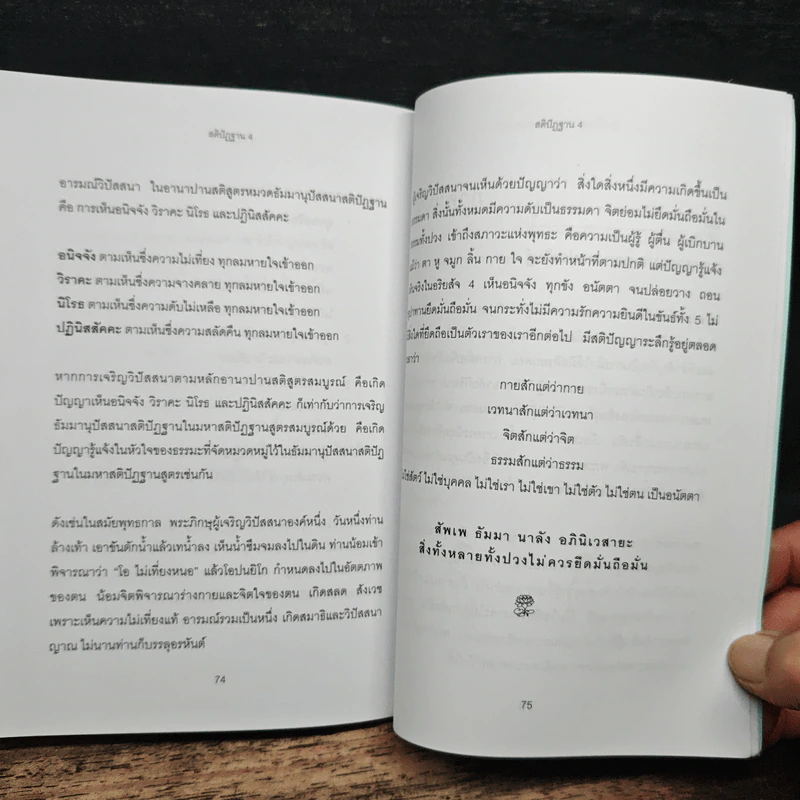 สติปัฏฐาน 4
อารมณ์วิปัสสนา ในอานาปานสติสูตรหมวดธัมมานุปัสสนาสติปัฏฐาน
คือ การเห็นอนิจจัง วิราคะ นิโรธ และปฏินิสสัคคะ
อนิจจัง ตามเห็นซึ่งความไม่เที่ยง ทุกลมหายใจเข้าออก
วิราคะ ตามเห็นซึ่งความจางคลาย ทุกลมหายใจเข้าออก
นิโรธ ตามเห็นซึ่งความดับไม่เหลือ ทุกลมหายใจเข้าออก
ปฏินิสสัคคะ ตามเห็นซึ่งความสลัดคืน ทุกลมหายใจเข้าออก
หากการเจริญวิปัสสนาตามหลักอานาปานสติสูตรสมบูรณ์ คือเกิด
ปัญญาเห็นอนิจจัง วิราคะ นิโรธ และปฏินิสสัคคะ ก็เท่ากับว่าการเจริญ
ธัมมานุปัสสนาสติปัฏฐานในมหาสติปัฏฐานสูตรสมบูรณ์ด้วย คือเกิด
ปัญญารู้แจ้งในหัวใจของธรรมะที่จัดหมวดหมู่ไว้ในธัมมานุปัสสนาสติปัฏ
ฐานในมหาสติปัฏฐานสูตรเช่นกัน
ดังเช่นในสมัยพุทธกาล พระภิกษุผู้เจริญวิปัสสนาองค์หนึ่ง วันหนึ่งท่าน
ล้างเท้า เอาขันตักน้ำแล้วเทน้ำลง เห็นน้ำซึมจมลงไปในดิน ท่านน้อมเข้า
พิจารณาว่า “โอ ไม่เที่ยงหนอ” แล้วโอปนยิโก กำหนดลงไปในอัตตภาพ
ของตน น้อมจิตพิจารณาร่างกายและจิตใจของตน เกิดสลด สังเวช
เพราะเห็นความไม่เที่ยงแท้ อารมณ์รวมเป็นหนึ่ง เกิดสมาธิและวิปัสสนา
ญาณ ไม่นานท่านก็บรรลุอรหันต์
74
สติปัฏฐาน 4
ผู้เจริญวิปัสสนาจนเห็นด้วยปัญญาว่า สิ่งใดสิ่งหนึ่งมีความเกิดขึ้นเป็น
ธรรมดา สิ่งนั้นทั้งหมดมีความดับเป็นธรรมดา จิตย่อมไม่ยึดมั่นถือมั่นใน
ธรรมทั้งปวง เข้าถึงสภาวะแห่งพุทธะ คือความเป็นผู้รู้ ผู้ตื่น ผู้เบิกบาน
ตา หู จมูก ลิ้น กาย ใจ จะยังทำหน้าที่ตามปกติ แต่ปัญญารู้แจ้ง
เห็นจริงในอริยสัจ 4 เห็นอนิจจัง ทุกขัง อนัตตา จนปล่อยวาง ถอน
อุปาทานยึดมั่นถือมั่น จนกระทั่งไม่มีความรักความยินดีในขันธ์ทั้ง 5 ไม่
มีสิ่งใดที่ยึดถือเป็นตัวเราของเราอีกต่อไป มีสติปัญญาระลึกรู้อยู่ตลอด
เวลาว่า
กายสักแต่ว่ากาย
เวทนาสักแต่ว่าเวทนา
จิตสักแต่ว่าจิต
ธรรมสักแต่ว่าธรรม
ไม่ใช่สัตว์ ไม่ใช่บุคคล ไม่ใช่เรา ไม่ใช่เขา ไม่ใช่ตัว ไม่ใช่ตน เป็นอนัตตา
สัพเพ ธัมมา นาลัง อภินิเวสายะ
สิ่งทั้งหลายทั้งปวงไม่ควรยึดมั่นถือมั่น
75